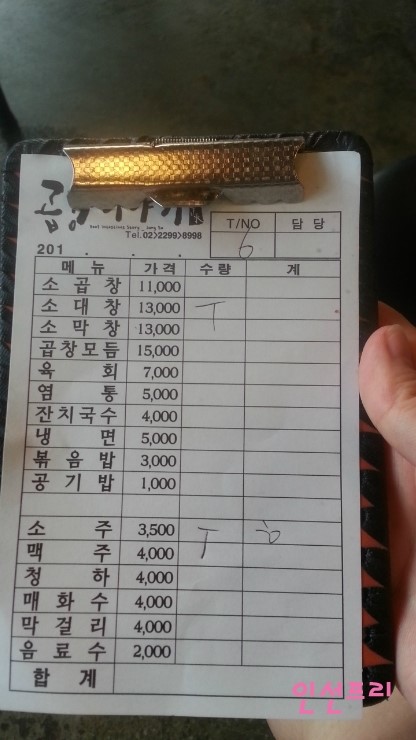 Tel.02>2299>8998
T/NO 담 당
6
201 . . .
메 뉴 가 격 수 량 계
소 곱 창 11,000
소 대 창 13,000 T
소 막 창 13,000
곱창모듬 15,000
육 회 7,000
염 통 5,000
잔치국수 4,000
냉 면 5,000
볶음밥 3,000
공기밥 1,000
소 주 3,500
맥 주 4,000 T
청 하 4,000
매 화 수 4,000
막 걸 리 4,000
음 료 수 2,000
합 계
인선트리